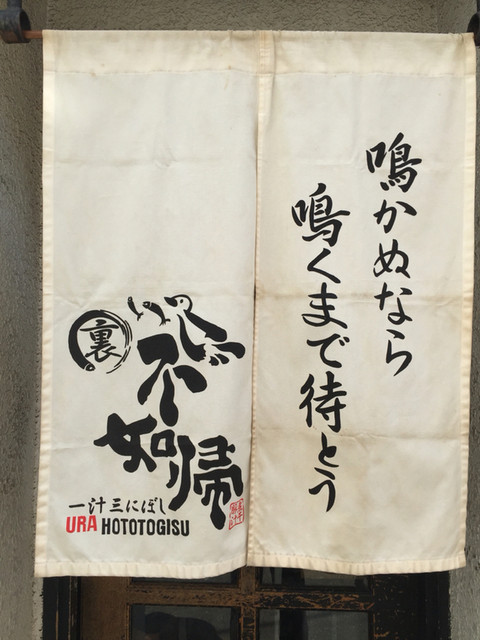 鳴かぬなら
鳴くまで待とう
裏
不如帰
一汁三にぼし
URA HOTOTOGISU